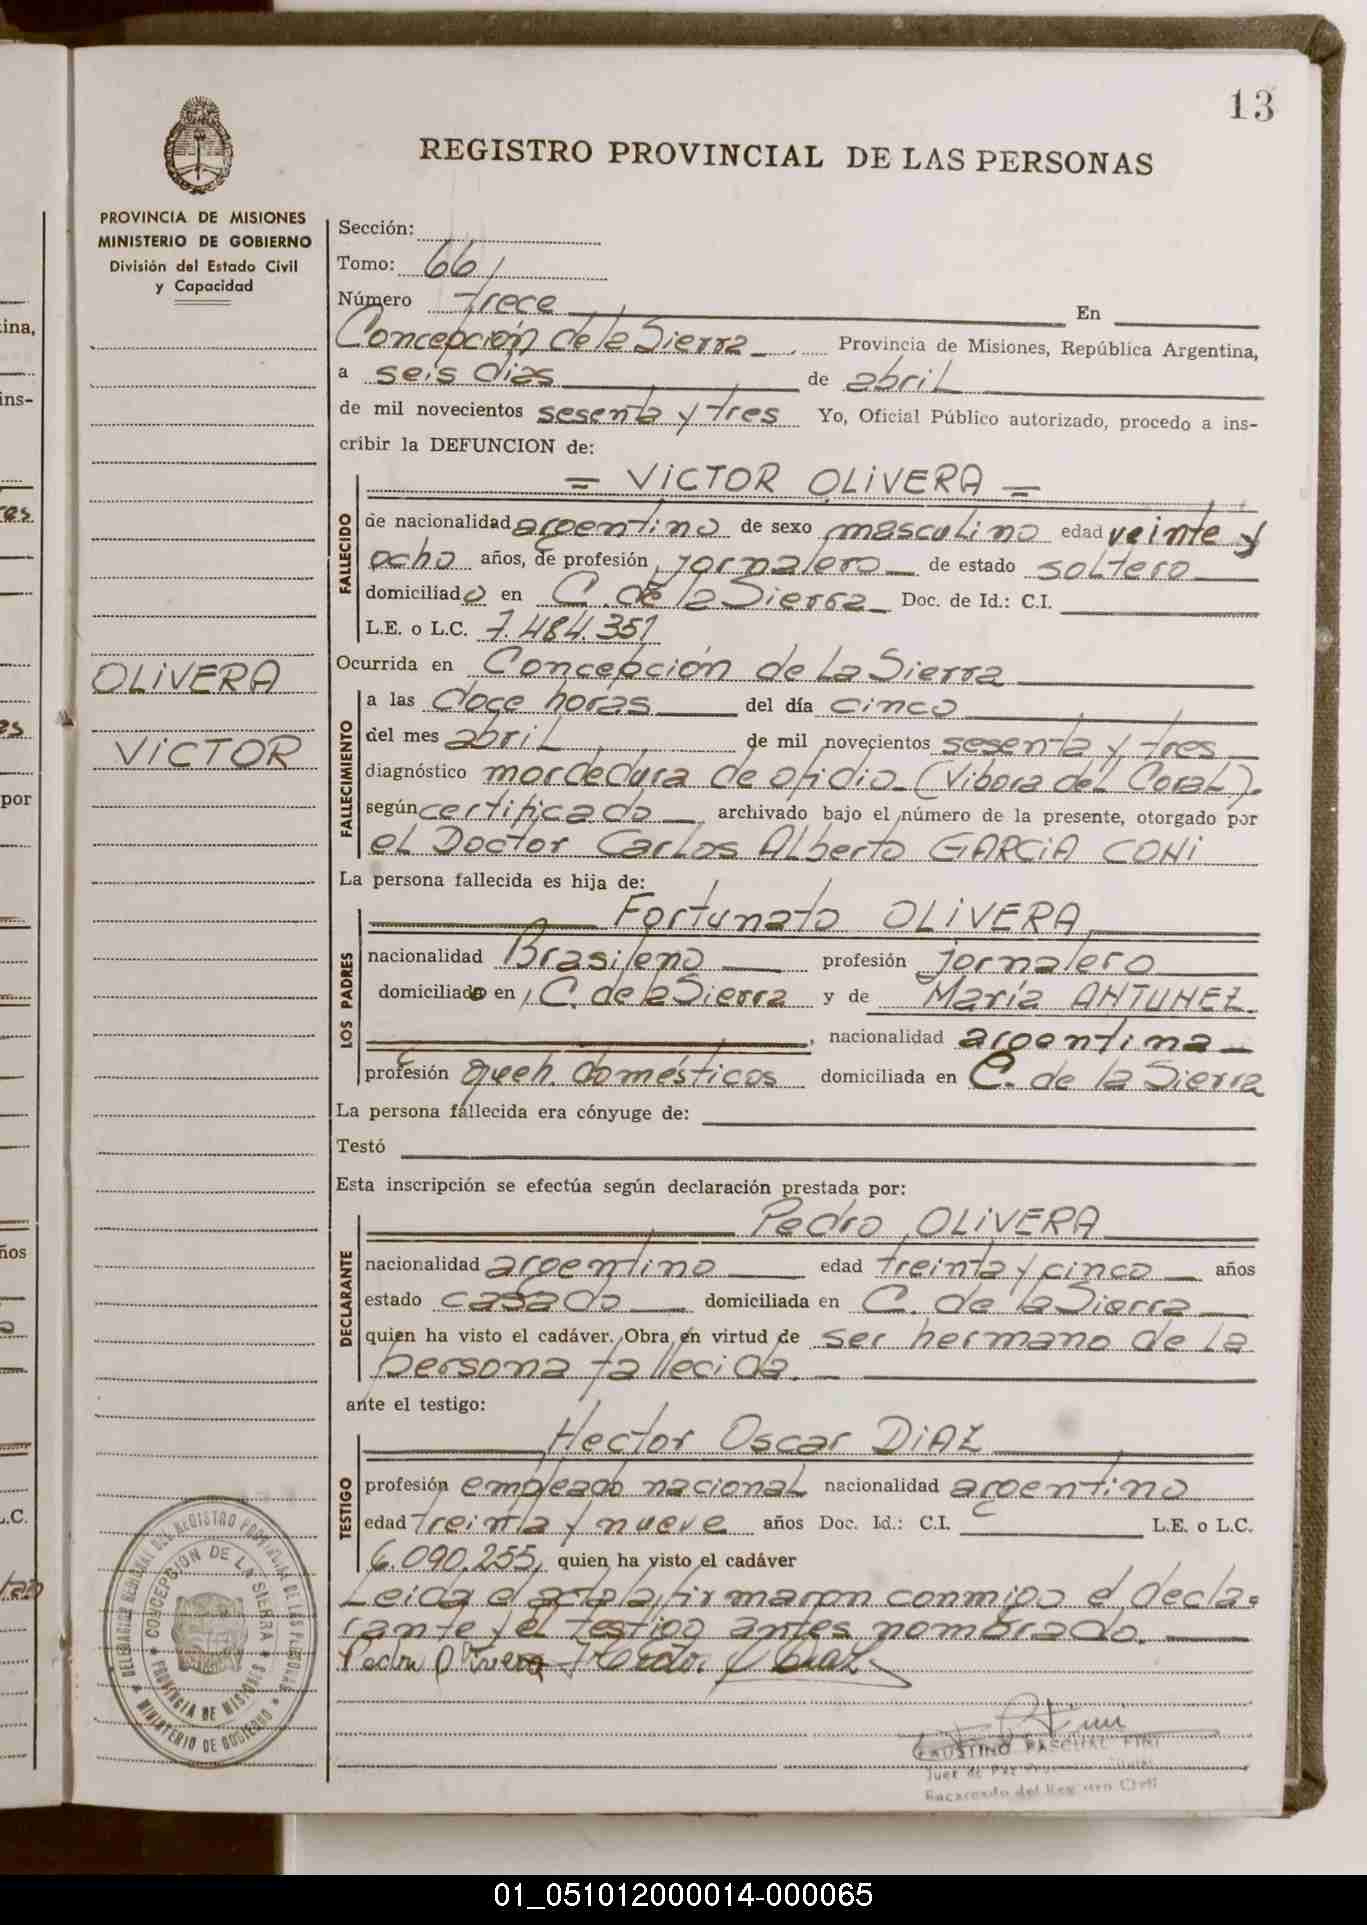 13
REGISTRO PROVINCIAL DE LAS PERSONAS
PROVINCIA DE MISIONES
MINISTERIO DE GOBIERNO
División del Estado Civil
y Capacidad
Sección:
Tomo: 66
Número trece En
Concepción de la Sierra Provincia de Misiones, República Argentina,
a seis dias de abril
de mil novecientos sesenta y tres Yo, Oficial Público autorizado, procedo a ins-
cribir la DEFUNCION de:
= VICTOR OLIVERA =
FALLECIDO
de nacionalidad argentino de sexo masculino edad veinte y
ocho años, de profesión jornalero de estado soltero
domiciliado en C. de la Sierra Doc. de Id.: C.I.
L.E. o L.C. 7.484.351
Ocurrida en Concepción de La Sierra
OLIVERA
VICTOR
FALLECIMIENTO
a las doce horas del día cinco
del mes abril de mil novecientos sesenta y tres
diagnóstico mordedura de ofidio (Vibora del Coral).
según certificado archivado bajo el número de la presente, otorgado por
el Doctor Carlos Alberto GARCIA CONI
La persona fallecida es hija de:
LOS PADRES
Fortunato OLIVERA
nacionalidad Brasileno profesión jornalero
domiciliado en C. de la Sierra y de María ANTUNEZ
, nacionalidad argentina
profesión queh. domésticos domiciliada en C. de la Sierra
La persona fallecida era cónyuge de:
Testó
Esta inscripción se efectúa según declaración prestada por:
DECLARANTE
Pedro OLIVERA
nacionalidad argentino edad treinta y cinco años
estado casado domiciliada en C. de la Sierra
quien ha visto el cadáver. Obra en virtud de ser hermano de La
persona fallecida.
ante el testigo:
TESTIGO
Hector Oscar DIAZ
profesión empleado nacional nacionalidad argentino
edad treinta y nueve años Doc. Id.: C.I. L.E. o L.C.
6.090.255, quien ha visto el cadáver
Leida el acta la firmaron conmigo el decla-
rante y el testigo antes nombrado.
Pedro Olivera Hector O Diaz
DELEGACION REGIONAL DEL REGISTRO PROVINCIAL DE LAS PERSONAS
CONCEPCION DE LA SIERRA
PROVINCIA DE MISIONES
MINISTERIO DE GOBIERNO
FAUSTINO PASCUAL FINI
Juez de Paz
Encargado del Registro Civil
01_051012000014-000065